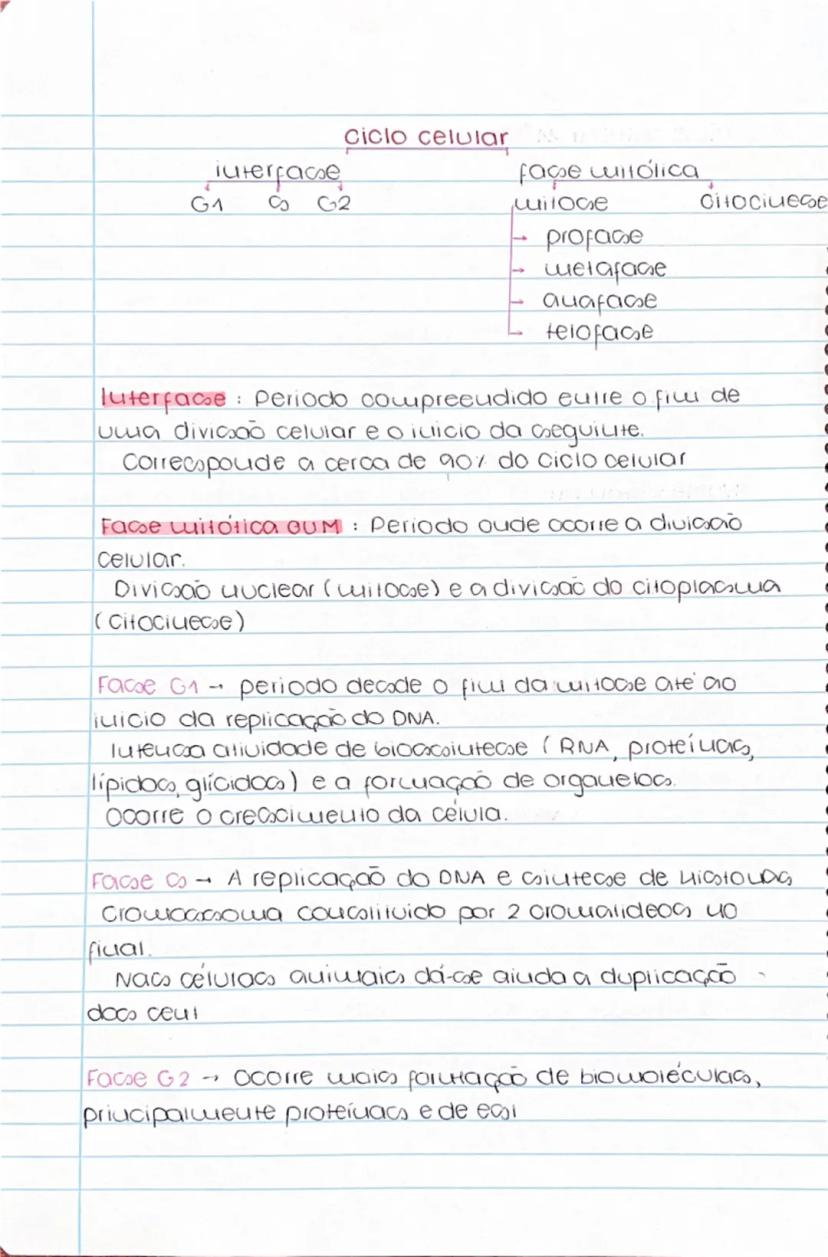 ciclo celular
interfase fase mitótica
G1 S G2 mitose citocinese
→ profase
→ metafase
→ anafase
→ telofase
Interfase : Periodo compreendido entre o fim de
uma divisão celular e o inicio da seguinte.
Corresponde a cerca de 90% do ciclo celular
Fase mitótica OUM : Periodo onde ocorre a divisão
celular.
Divisão nuclear (mitose) e a divisão do citoplasma
(citocinese)
Fase G1 → periodo desde o fim da mitose até ao
inicio da replicação do DNA.
Intensa atividade de biossintese (RNA, proteínas,
lípidos, glícidos) e a formação de organelos.
Ocorre o crescimento da célula.
Fase S → A replicação do DNA e sintese de histonas
Cromossoma constituido por 2 cromatideos no
final.
Nas células animais dá-se ainda a duplicação
dos cent
Fase G2 → Ocorre mais formação de biomoléculas,
principalmente proteínas e de est